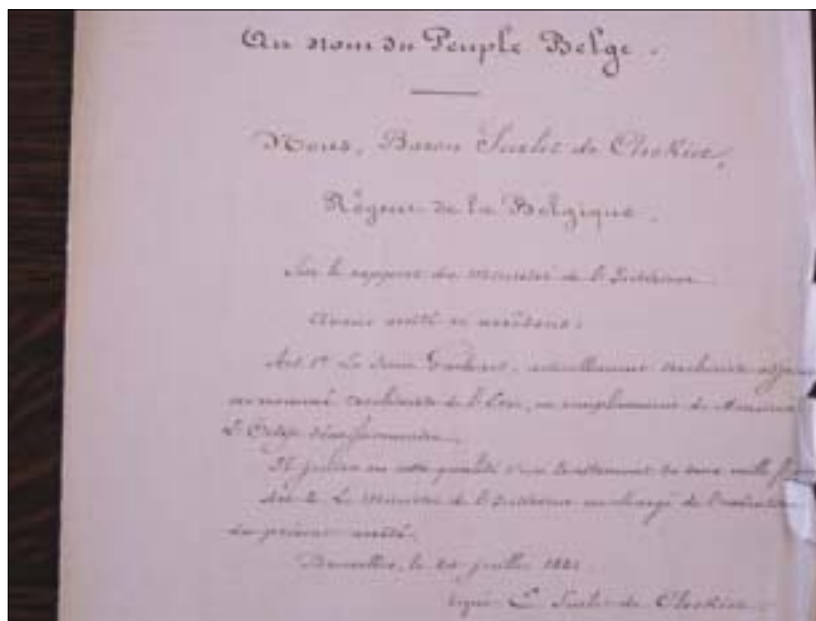 Au nom du Peuple Belge.
Nous, Baron Surlet de Chokier,
Régent de la Belgique.
Sur le rapport du ministre de l'Intérieur
Avons arrêté et arrêtons:
Art. 1er Le Sieur actuellement archiviste
est nommé archiviste de l'Etat, en remplacement de Monsieur
L'Ortye démissionnaire.
Il jouira en cette qualité d'un traitement de mille
Art. 2. Le ministre de l'Intérieur est chargé de l'exécution
du présent arrêté.
Bruxelles, le juillet 1831
signé E. Surlet de Chokier.